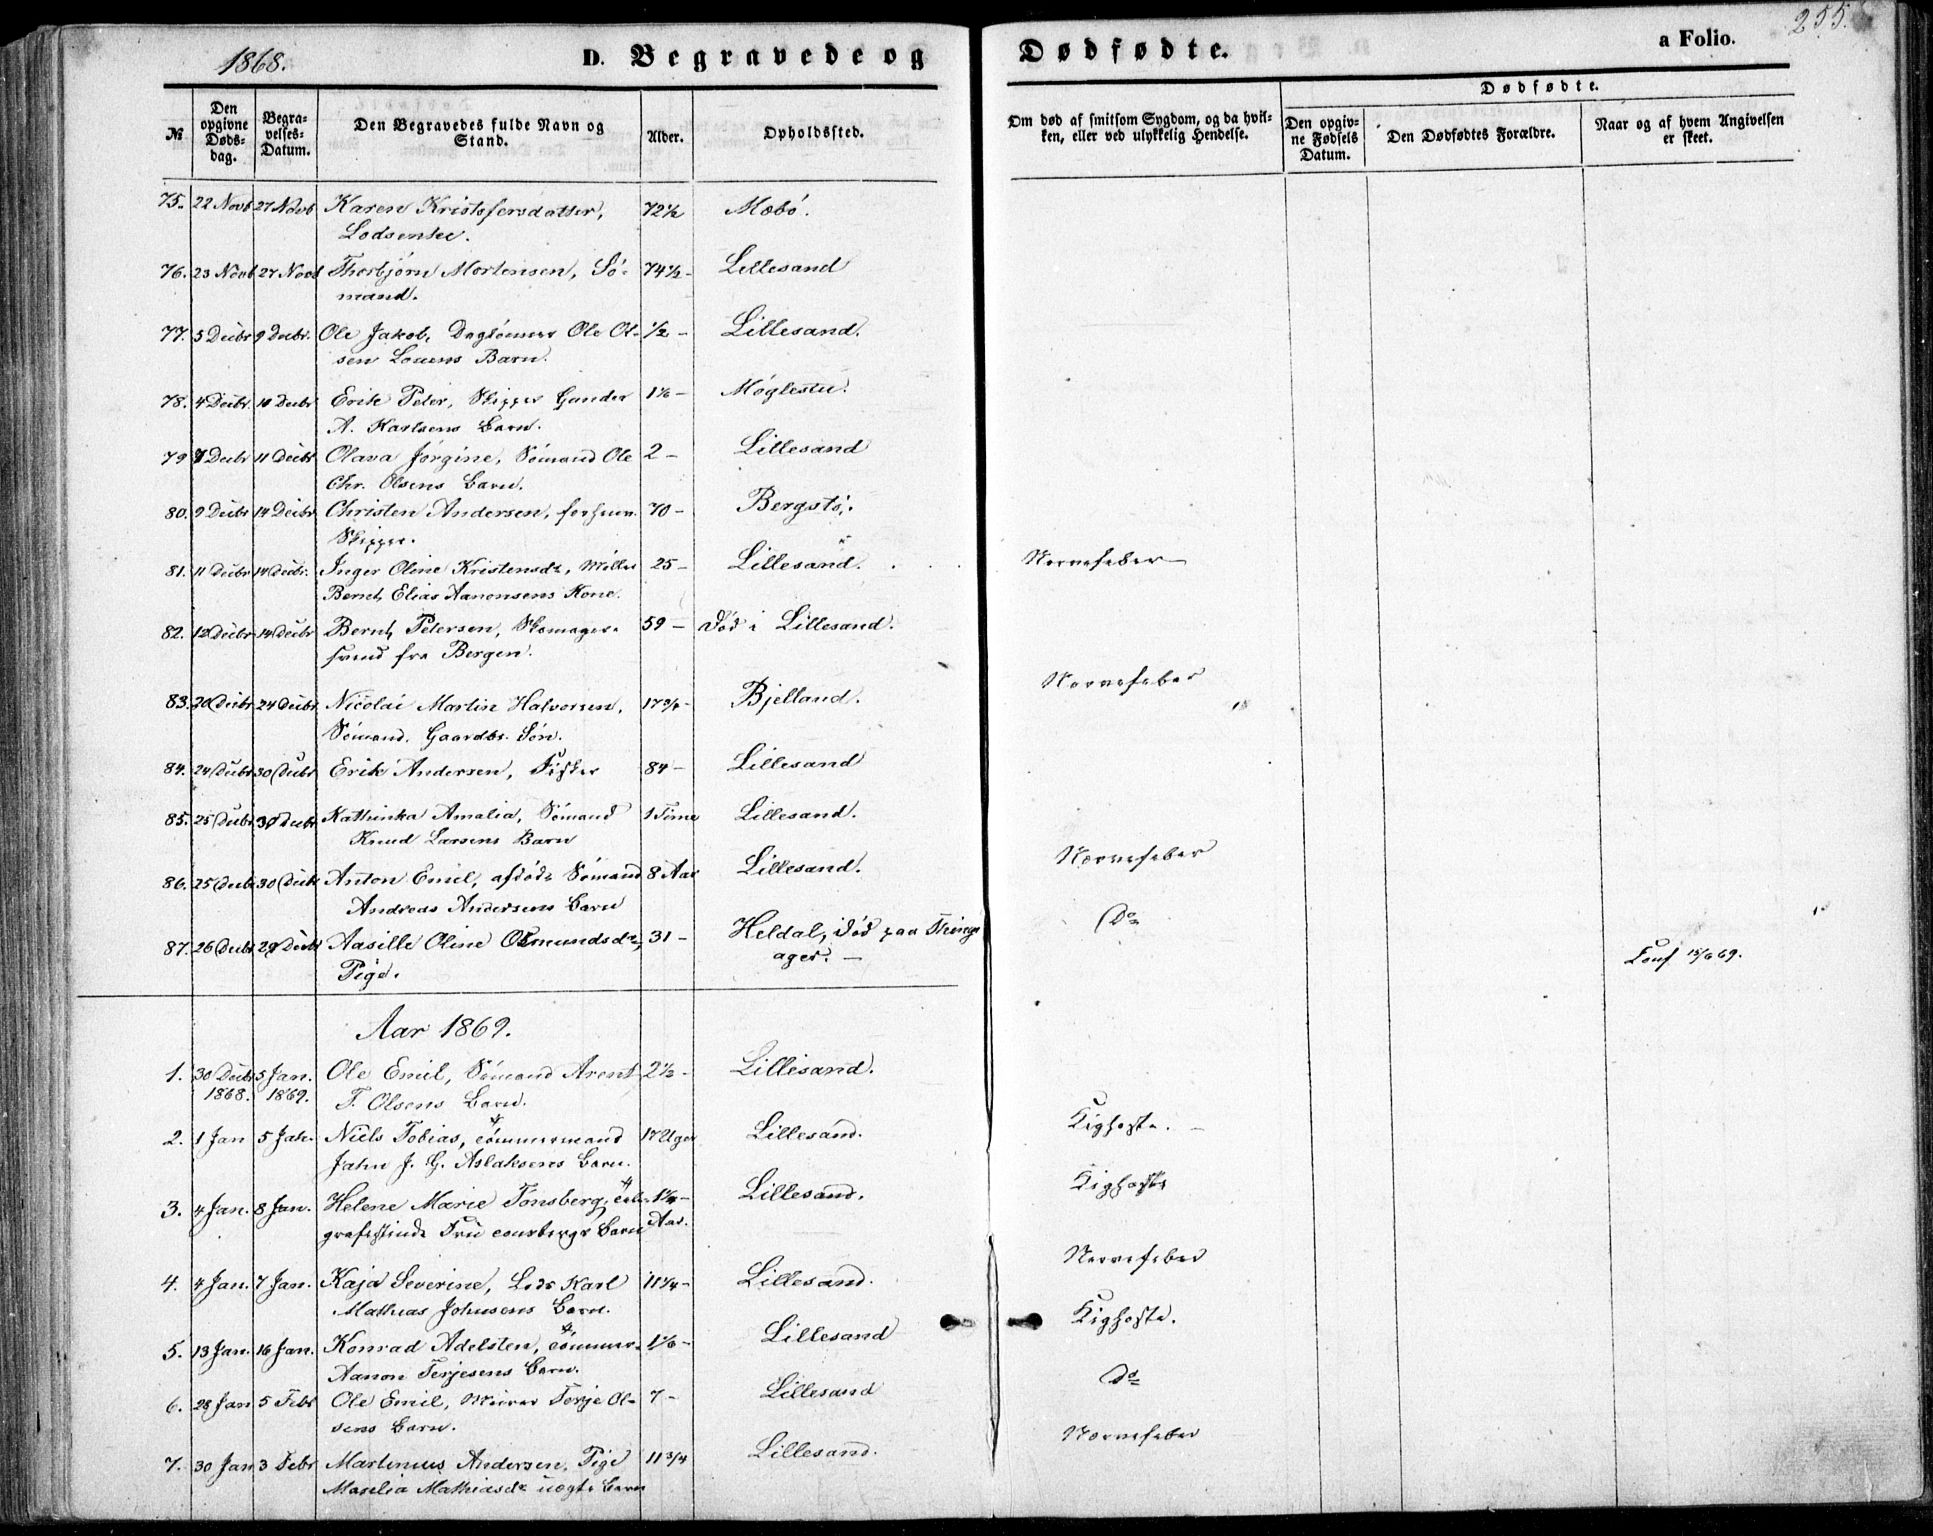 1868.
D. Begravede og Dødfødte.
a Folio.
255.
№
Den opgivne Dødsdag.
Begravelses-Datum.
Den Begravedes fulde Navn og Stand.
Alder.
Opholdssted.
Om død af smitsom Sygdom, og da hvilken, eller ved ulykkelig Hendelse.
Dødfødte.
Den opgivne Fødsels Datum.
Den Dødfødtes Forældre.
Naar og af hvem Angivelsen er skeet.
75. 22 Novb 27 Novb Karen Kristofersdatter, 72½ Mæbø.
Lodsenke.
76. 23 Novb 27 Novb Thorbjørn Mortensen, Sø- 74½ - Lillesand
mand.
77. 5 Decbr 9 Decbr. Ole Jakob, Daglønner Ole Ol- ½ - Lillesand.
sen Barn.
78. 4 Decbr 10 Decbr Erik Peter, Skipper Gunder - Møglestu.
A. Karlsens Barn.
79 7 Decbr 11 Decbr Olava Jørgine, Sømand Ole 2 - Lillesand
Chr. Olsens Barn.
80. 9 Decbr 14 Decbr Christen Andersen, forhenv. 70 - Bergstø.
Skipper.
81. 11 Decbr 14 Decbr. Inger Oline Kristensdr, Møller 25 - Lillesand. Nervefeber
Bernt Elias Aanonsens Kone.
82. 12 Decbr 14 Decbr Bernt Petersen, Skomager- 59 - Død i Lillesand.
svend fra Bergen.
83. 20 Decbr 24 Decbr. Nicolai Martin Halvorsen, 17¾ - Bjelland. Nervefeber
Sømand. Gaardbr. Søn.
84. 24 Decbr 30 Decbr Erik Andersen, Fisker 84 - Lillesand
85. 25 Decbr 30 Decbr Kathinka Amalia, Sømand 1 Time Lillesand.
Knud Larsens Barn
86. 25 Decbr 30 Decbr Anton Emil, afdøde Sømand 8 Aar Lillesand. Nervefeber
Andreas Andersens Barn
87. 26 Decbr 29 Decbr Aasille Oline Osmundsdr, 31 - Heldal, død paa Tringe- Do
Pige. ager. - Conf 15/6 69.
Aar 1869.
1. 30 Decbr 5 Jan. Ole Emil, Sømand Arent 2½ - Lillesand.
1868. 1869. T. Olsens Barn.
2. 1 Jan 5 Jan. Niels Tobias, Tømmermand 17 Uger Lillesand. Kighoste.
Jahn J. G. Aslaksens Barn.
3. 4 Jan. 8 Jan. Helene Marie Tønsberg, Tele- 1¼ - Lillesand. Kighoste
Barn Aar.
4. 4 Jan. 7 Jan. Kaja Severine, Lods Karl 11¼ - Lillesand. Nervefeber
Mathias Johnsens Barn.
5. 13 Jan. 16 Jan. Konrad Adelsten, Tømmer. - Lillesand Kighoste.
Aanon Terjesens Barn.
6. 28 Jan 5 Febr Ole Emil, Murer Terje Ol- 7 - Lillesand Do
sens Barn.
7. 30 Jan 3 Febr Martinius Andersen, Pige 11¾ Lillesand. Nervefeber
Maselia Mathiasdr uægte Barn